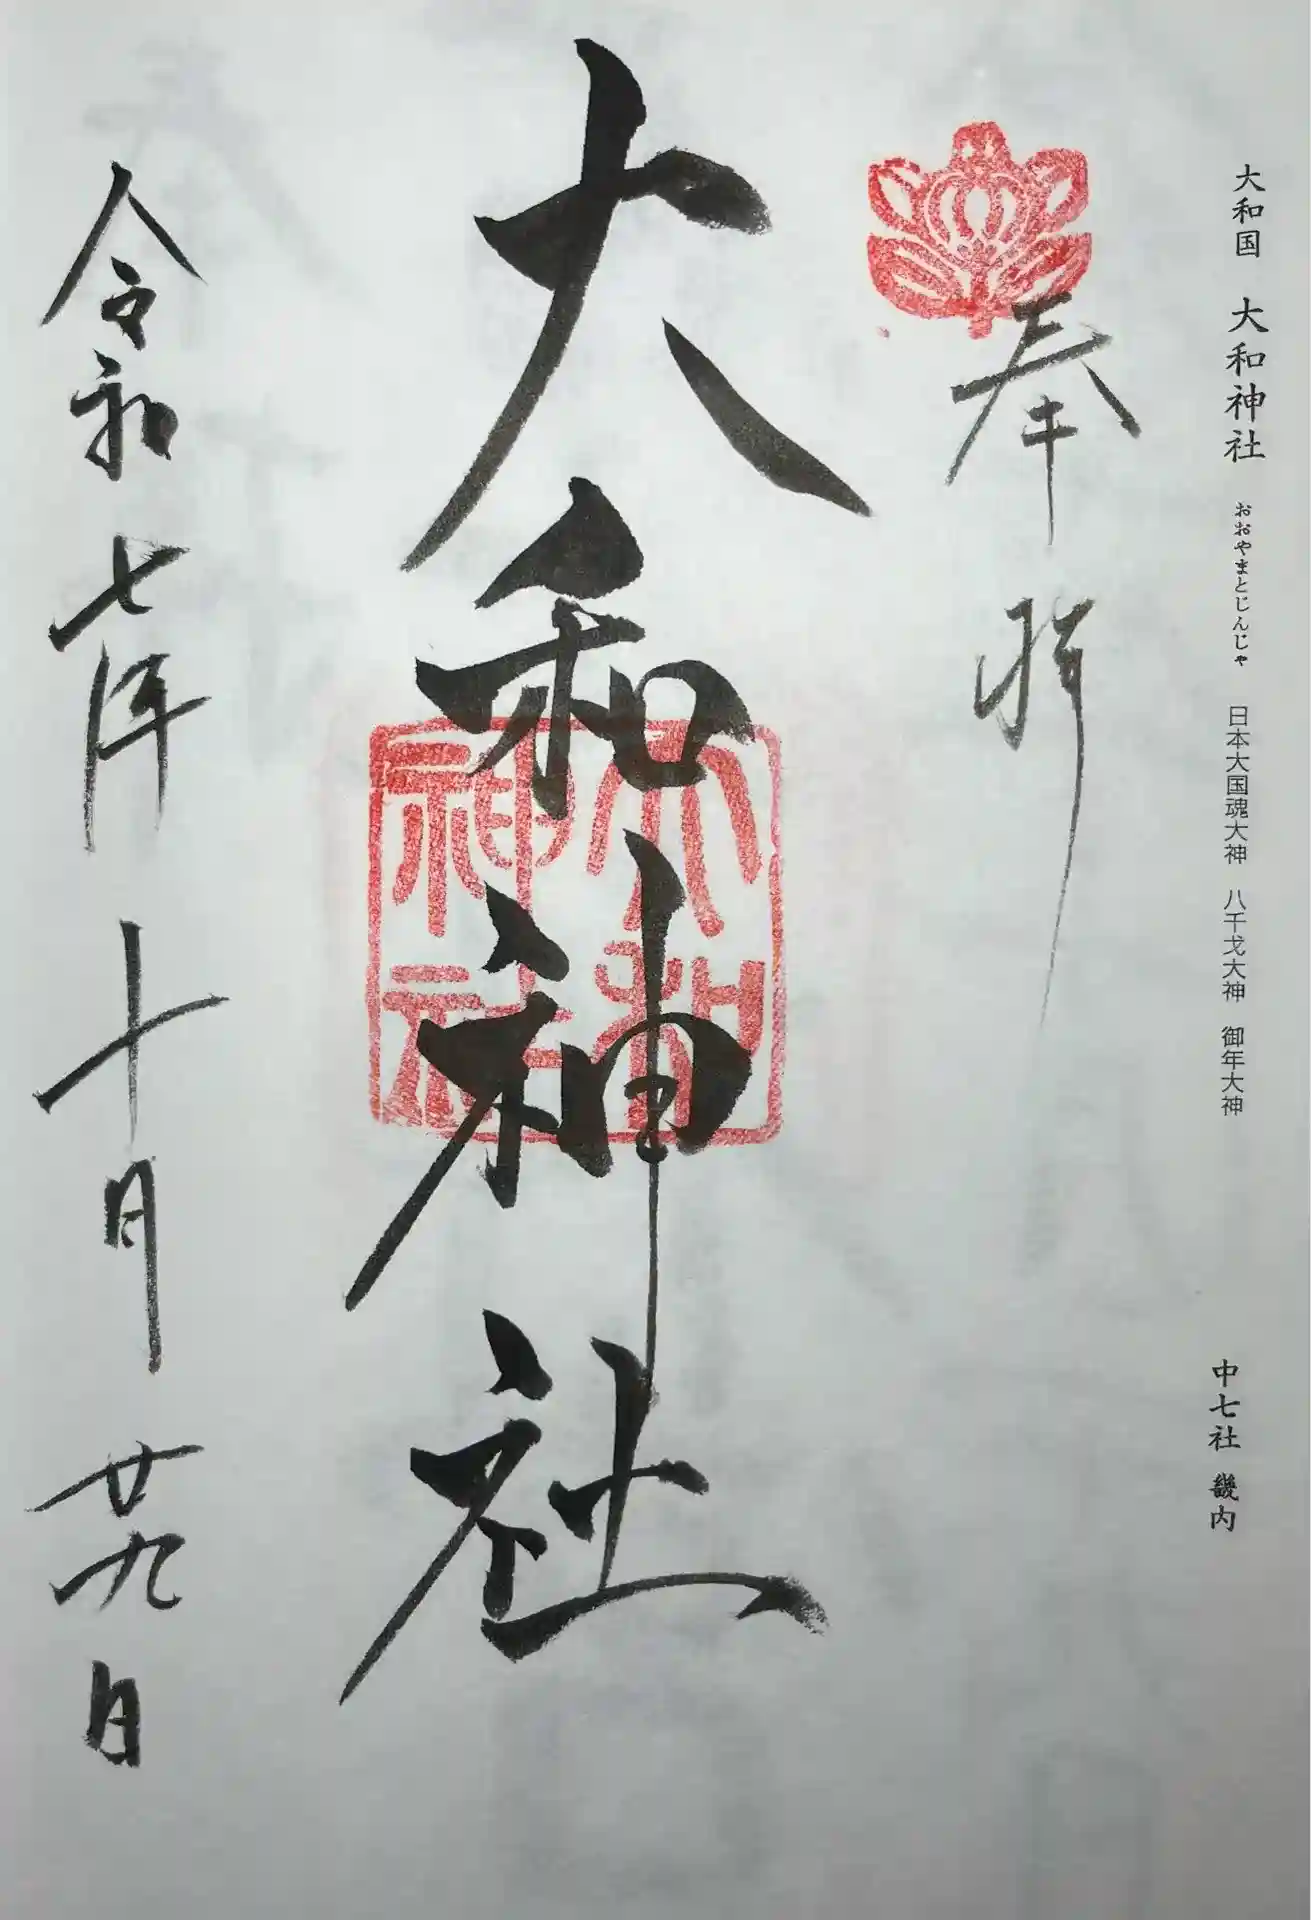 大和国 大和神社 おおやまとじんじゃ 日本大国魂大神 八千戈大神 御年大神
中七社 畿内
奉拝
大和神社
大和
神社
令和七年十月廿九日